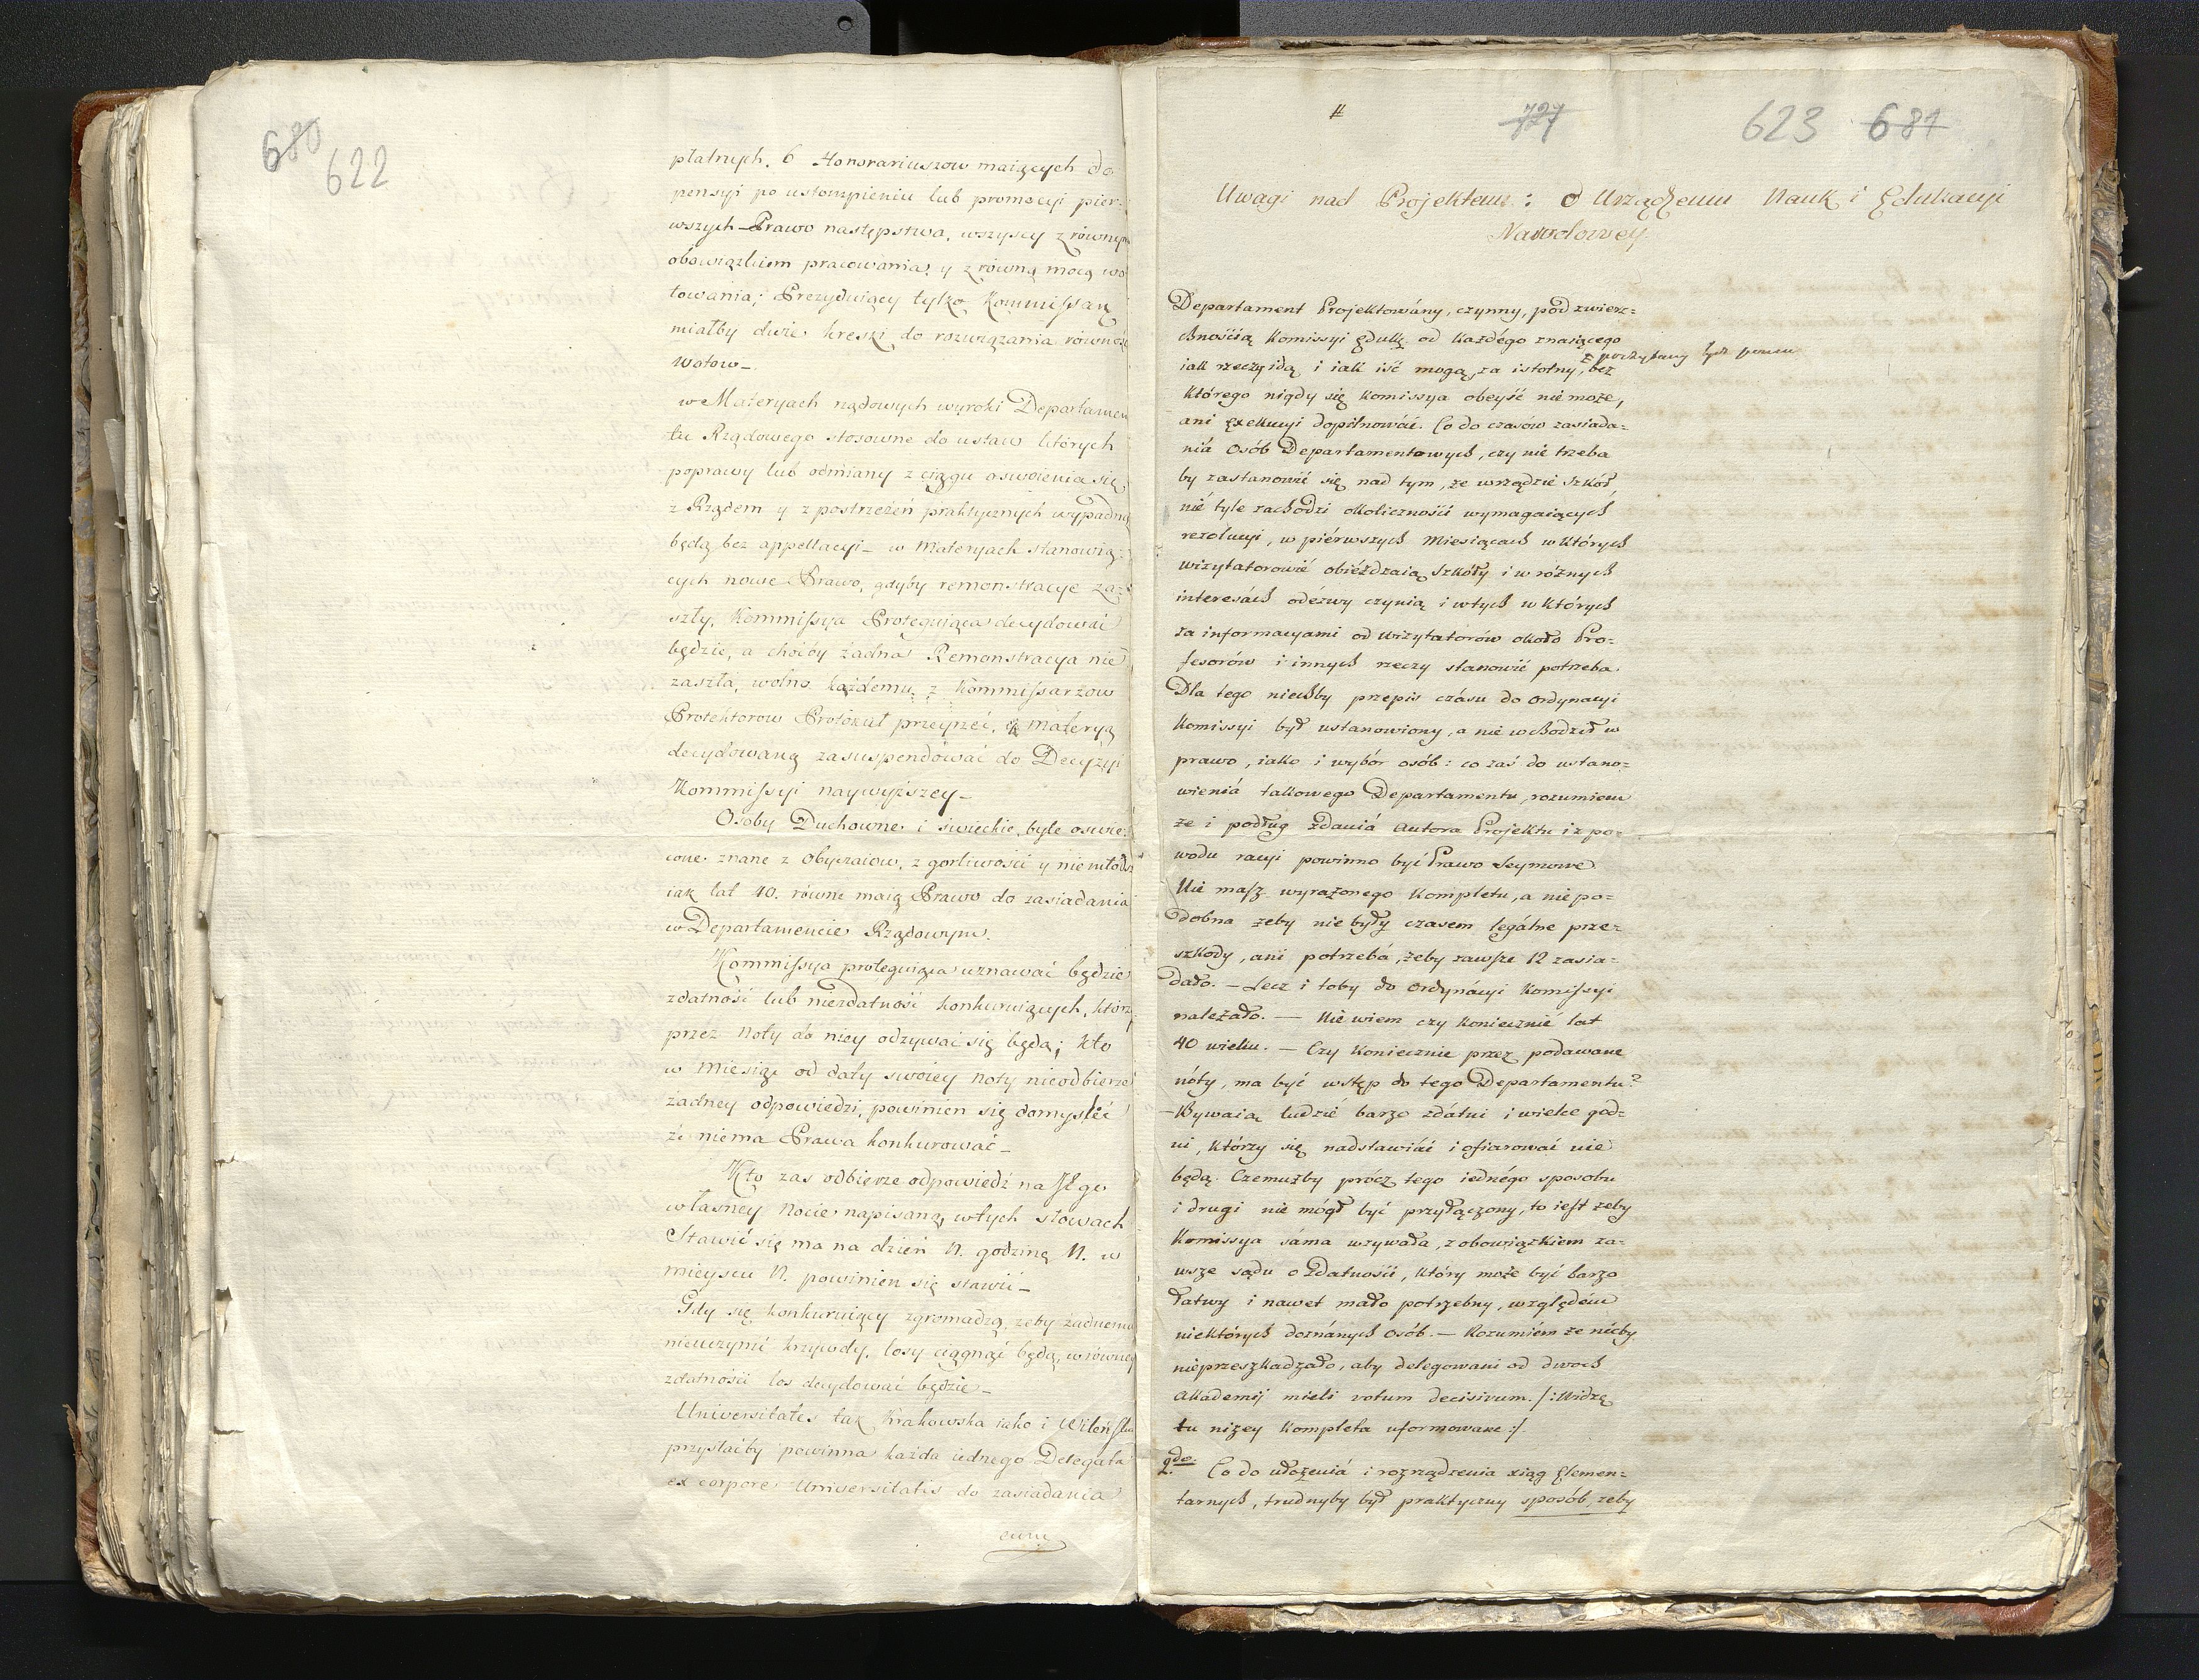 680
622
płatnych, 6 Honorariuszow maiących do
pensyi po ustompieniu lub promocyi pier-
wszych Prawo następstwa, wszyscy z równym
obowiązkiem pracowania, y z równą mocą wo
towania; Prezyduiący tylko Kommissarz
miałby dwie kreski do rozwiązania równość
wotow_
w Materyach rządowych wyroki Departamen
tu Rządowego stosowne do ustaw których
poprawy lub odmiany z ciągu oswoienia się
z Rządem y z postrzeżeń praktycznych wypadną
będą bez appellacyi_ w Materyach stanowią-
cych nowe Prawo, gdyby remonstracye za-
szły, Kommissya Proteguiąca decydować
będzie, a choćby żadna Remonstracya nie
zaszła, wolno każdemu z Kommissarzow
Protektorow Protokuł przeyrzeć, materyą
decydowaną zasuspendować do Decyzyi
Kommissyi naywyższey_
Osoby Duchowne i swieckie, byle oswie-
cone znane z obyczaiow, z gorliwości y nie młods
iak lat 40. równe maią Prawo do zasiadania
w Departamencie Rządowym.
Kommissya proteguiąca uznawać będzie
zdatność lub niezdatność konkuruiących, którz
przez Noty do niey odzywać się będą; kto
w miesiąc od daty swoiey Noty nieodbierze
żadney odpowiedzi, powinien się domyslić
że niema Prawa konkurować_
Kto zas odbierze odpowiedź na JEgo
własney Nocie napisaną, w tych słowach
Stawić się ma na dzień N. godzinę N. w
mieyscu N. powinien się stawić_
Gdy się konkuruiący zgromadzą, żeby żadnemu
nieuczynić krzywdy, losy ciągnąć będą, w równey
zdatności los decydować będzie_
Universitates tak Krakowska iako i Wileńska
przystaćby powinna każda iednego Delegata
ex corpore Universitatis do zasiadania
cum
#
727
623 681
Uwagi nad Projektem: o Urządzeniu Nauk i Edukacyi
Narodowey.
Departament Projektowány, czynny, pod zwierz-
chnością Komissyi Eduk. od każdégo znaiącego
iak rzeczy idą i iak iść mogą, za istotny, bez
poczytany być powin
którego nigdy się Komissya obeyść nie może,
ani Exekucyi dopilnować. Co do czasów zasiada-
nia Osób Departamentowych, czy nie trzeba
by zastanowić się nad tym, że w rządzie szkół,
nie tyle zachodzi okoliczności wymagaiących
rezolucyi, w piérwszych Miesiącach w których
wizytatorowie obieżdzaią szkóły i w różnych
interesách odezwy czynią i w tych w których
za informacyami od wizytatorów około Pro-
fesorów i innych rzeczy stanowić potrzeba.
Dla tego niechby przepis czásu do ordynacyi
Komissyi był ustanowiony, a nie wchodził w
prawo, iako i wybór osób: co zaś do ustano-
wienia takowego Departamentu, rozumiem
że i podług zdania Autora Projektu i z po-
wodu racyi powinno być Prawo Seymowe
Nie masz wyrażonego Kompletu, a nie po-
dobna żeby nie były czasem legálne prze-
szkody, ani potrzebá, żeby zawsze 12 zasia-
dało. — Lecz i toby do ordynácyi Komissyi
należało. — Nie wiem czy koniecznié lat
40 wieku. — Czy koniecznie przez podawane
nóty, ma być wstęp do tego Departamentu?
— Bywaią ludzie barzo zdátni i wielce god-
ni, którzy się nadstawiać i ofiarować nie
będą. Czemużby prócz tego iednégo sposobu
i drugi nie mógł być przyłączony, to iest żeby
Komissya sáma wzywała, z obowiązkiem za-
wsze sądu o zdatności, który może być barzo
łatwy i nawet mało potrzebny, względém
niektórych doznánych osób. — Rozumiém że nicby
nieprzeszkadzało, aby delegowani od dwoch
Akademij mieli votum decisivum. /: Widzę
tu niżey Kompleta uformowane :/.
2do. Co do ułożeniá i rozrządzenia xiąg Elemen-
tarnych, trudnyby był praktyczny sposób, żeby